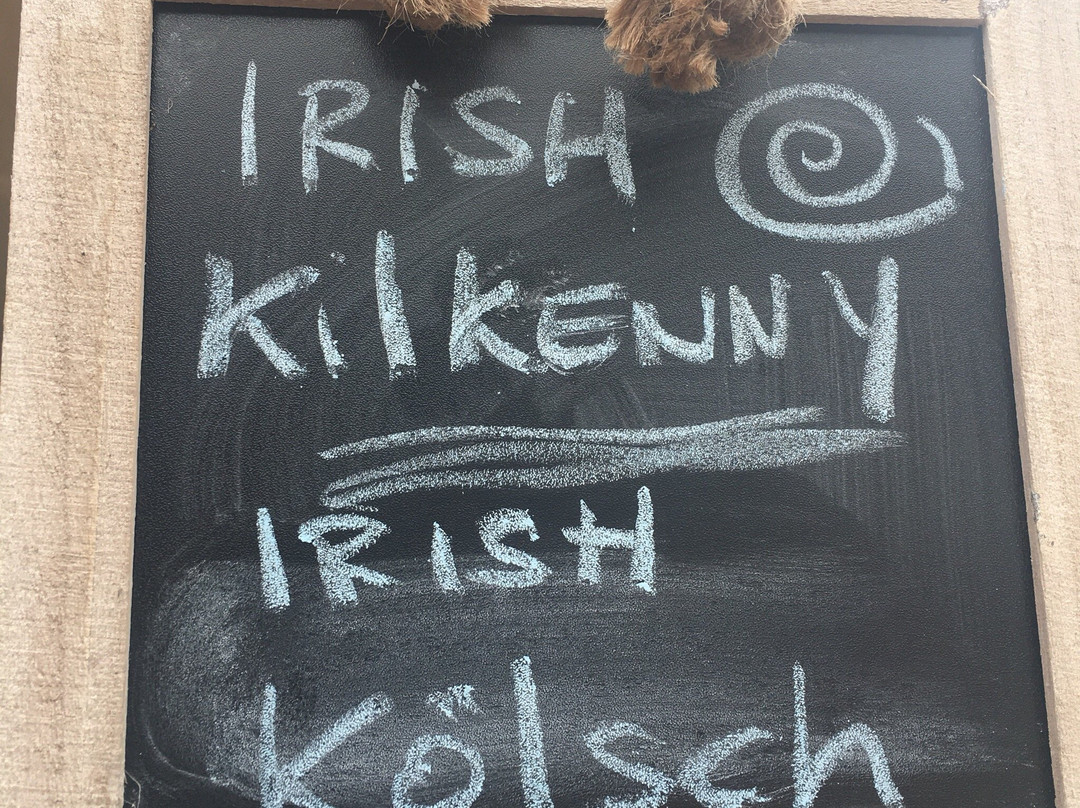 IRISH
KilKENNY
IRISH
Kölsch